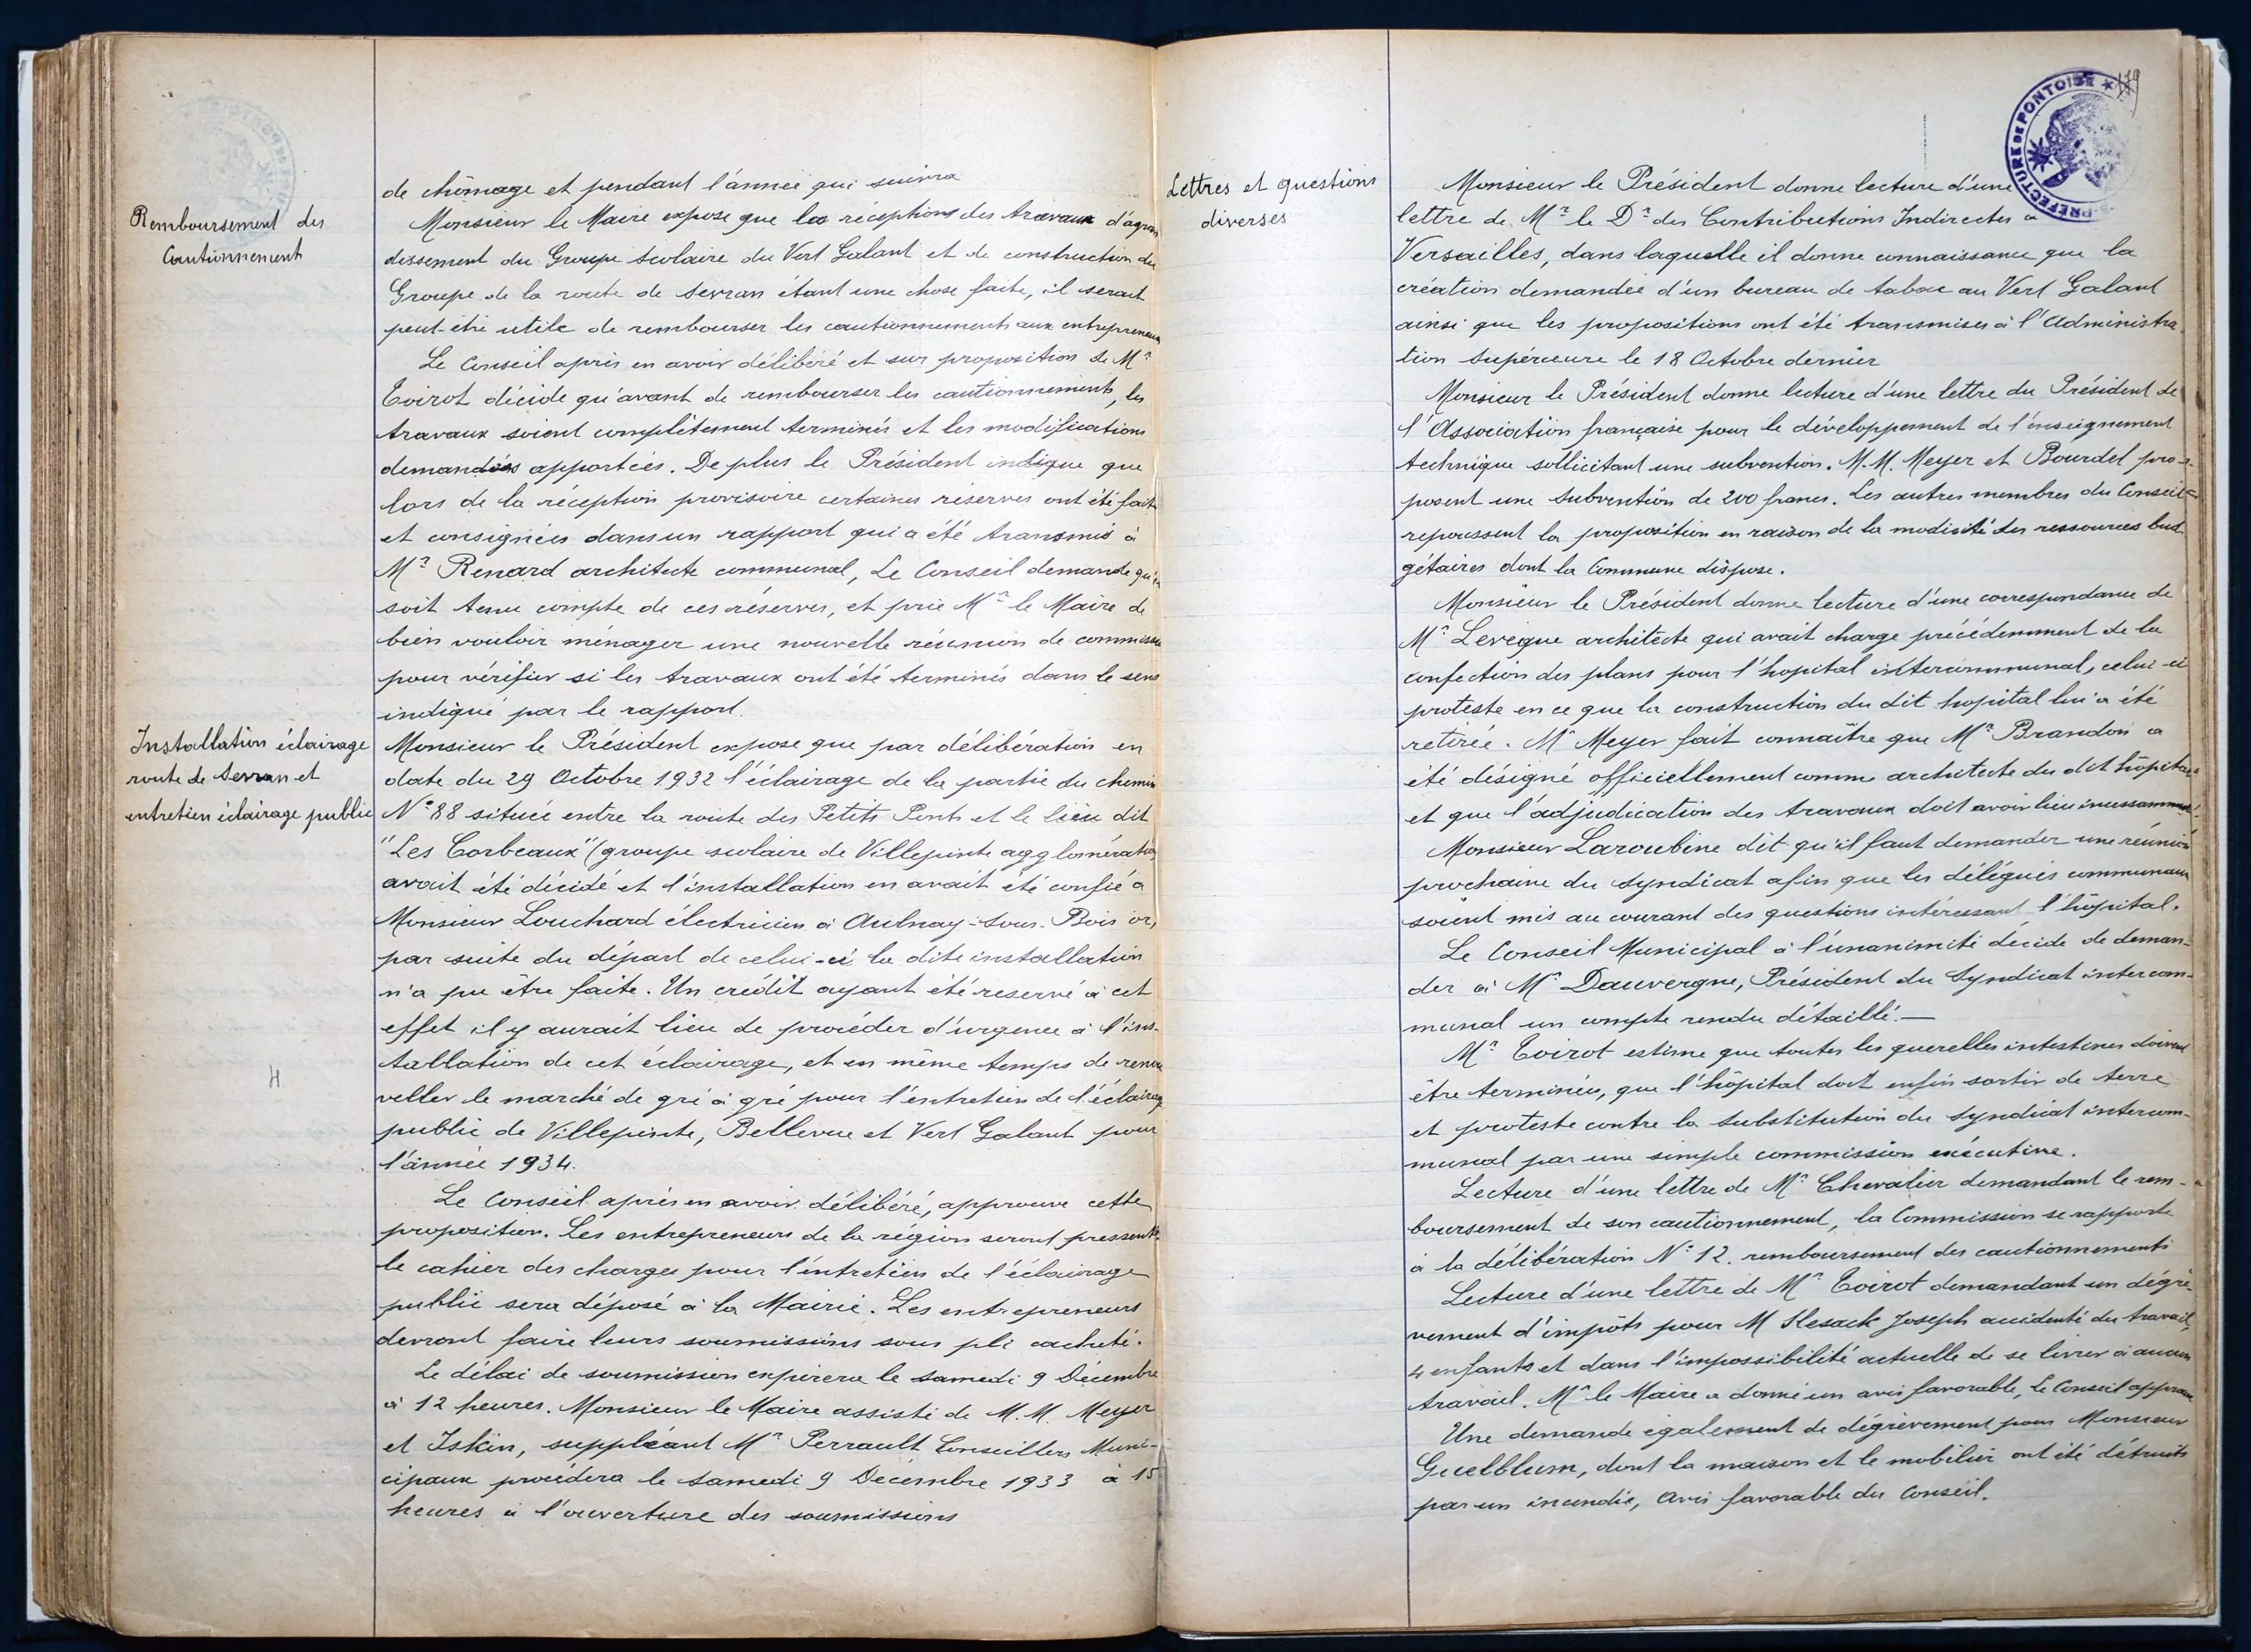 Remboursement des
Cautionnement
de chômage et pendant l'année qui suivra
Monsieur le Maire expose que les réceptions des travaux d'agran
dissement du Groupe scolaire du Vert Galant et de construction du
Groupe de la route de Sevran étant une chose faite, il serait
peut-être utile de rembourser les cautionnements aux entrepreneurs
Le Conseil après en avoir délibéré et sur proposition de Mr
Toirot décide qu'avant de rembourser les cautionnements, les
travaux soient complètement terminés et les modifications
demandées apportées. De plus le Président indique que
lors de la réception provisoire certaines réserves ont été faites
et consignées dans un rapport qui a été transmis à
Mr Renard architecte communal, Le Conseil demande qu'il
soit tenu compte de ces réserves, et prie Mr le Maire de
bien vouloir ménager une nouvelle réunion de commission
pour vérifier si les travaux ont été terminés dans le sens
indiqué par le rapport.
Installation éclairage
route de Sevran et
entretien éclairage public
Monsieur le Président expose que par délibération en
date du 29 Octobre 1932 l'éclairage de la partie du chemin
N° 88 située entre la route des Petits Ponts et le lieu dit
"Les Corbeaux" (groupe scolaire de Villepinte agglomération
avait été décidé et l'installation en avait été confié à
Monsieur Louchard électricien à Aulnay-sous-Bois or,
par suite du départ de celui-ci la dite installation
n'a pu être faite. Un crédit ayant été reservé à cet
effet il y aurait lieu de procéder d'urgence à l'ins-
tallation de cet éclairage, et en même temps de renou
veller le marché de gré à gré pour l'entretien de l'éclairage
public de Villepinte, Bellevue et Vert Galant pour
l'année 1934.
Le Conseil après en avoir délibéré, approuve cette
proposition. Les entrepreneurs de la région seront pressentis
le cahier des charges pour l'entretien de l'éclairage
public sera déposé à la Mairie. Les entrepreneurs
devront faire leurs soumissions sous pli cacheté.
Le délai de soumission expirera le samedi 9 Décembre
à 12 heures. Monsieur le Maire assisté de M.M. Meyer
et Iskin, suppléant Mr Perrault Conseillers Muni-
cipaux procèdera le samedi 9 Décembre 1933 à 15
heures à l'ouverture des soumissions
179
PREFECTURE DE PONTOISE
Lettres et questions
diverses
Monsieur le Président donne lecture d'une
lettre de Mr le Dr des Contributions Indirectes à
Versailles, dans laquelle il donne connaissance que la
création demandée d'un bureau de tabac au Vert Galant
ainsi que les propositions ont été transmises à l'Administra-
tion supérieure le 18 Octobre dernier
Monsieur le Président donne lecture d'une lettre du Président de
l'Association française pour le développement de l'enseignement
technique sollicitant une subvention. M.M. Meyer et Bourdel pro-
posent une subvention de 200 francs. Les autres membres du Conseil
repoussent la proposition en raison de la modicité des ressources bud-
gétaires dont la Commune dispose.
Monsieur le Président donne lecture d'une correspondance de
Mr Leveque architecte qui avait charge précédemment de la
confection des plans pour l'hopital intercommunal, celui-ci
proteste en ce que la construction du dit hopital lui a été
retirée. Mr Meyer fait connaître que Mr Brandon a
été désigné officiellement comme architecte du dit hôpital
et que l'adjudication des travaux doit avoir lieu incessamment.
Monsieur Laroubine dit qu'il faut demander une réunion
prochaine du syndicat afin que les délégués communaux
soient mis au courant des questions intéressant l'hôpital.
Le Conseil Municipal à l'unanimité décide de deman-
der à Mr Dauvergne, Président du Syndicat intercom-
munal un compte rendu détaillé.—
Mr Toirot estime que toutes les querelles intestines doivent
être terminées, que l'hôpital doit enfin sortir de terre
et proteste contre la substitution du syndicat intercom-
munal par une simple commission exécutive.
Lecture d'une lettre de Mr Chevalier demandant le rem-
boursement de son cautionnement, la Commission se rapporte
à la délibération N° 12. remboursement des cautionnements
Lecture d'une lettre de Mr Toirot demandant un dégrè-
vement d'impôts pour M Slesack Joseph accidenté du travail,
4 enfants et dans l'impossibilité actuelle de se livrer à aucun
travail. Mr le Maire a donné un avis favorable, Le Conseil approuve
Une demande également de dégrèvement pour Monsieur
Guelblum, dont la maison et le mobilier ont été détruits
par un incendie, Avis favorable du Conseil.